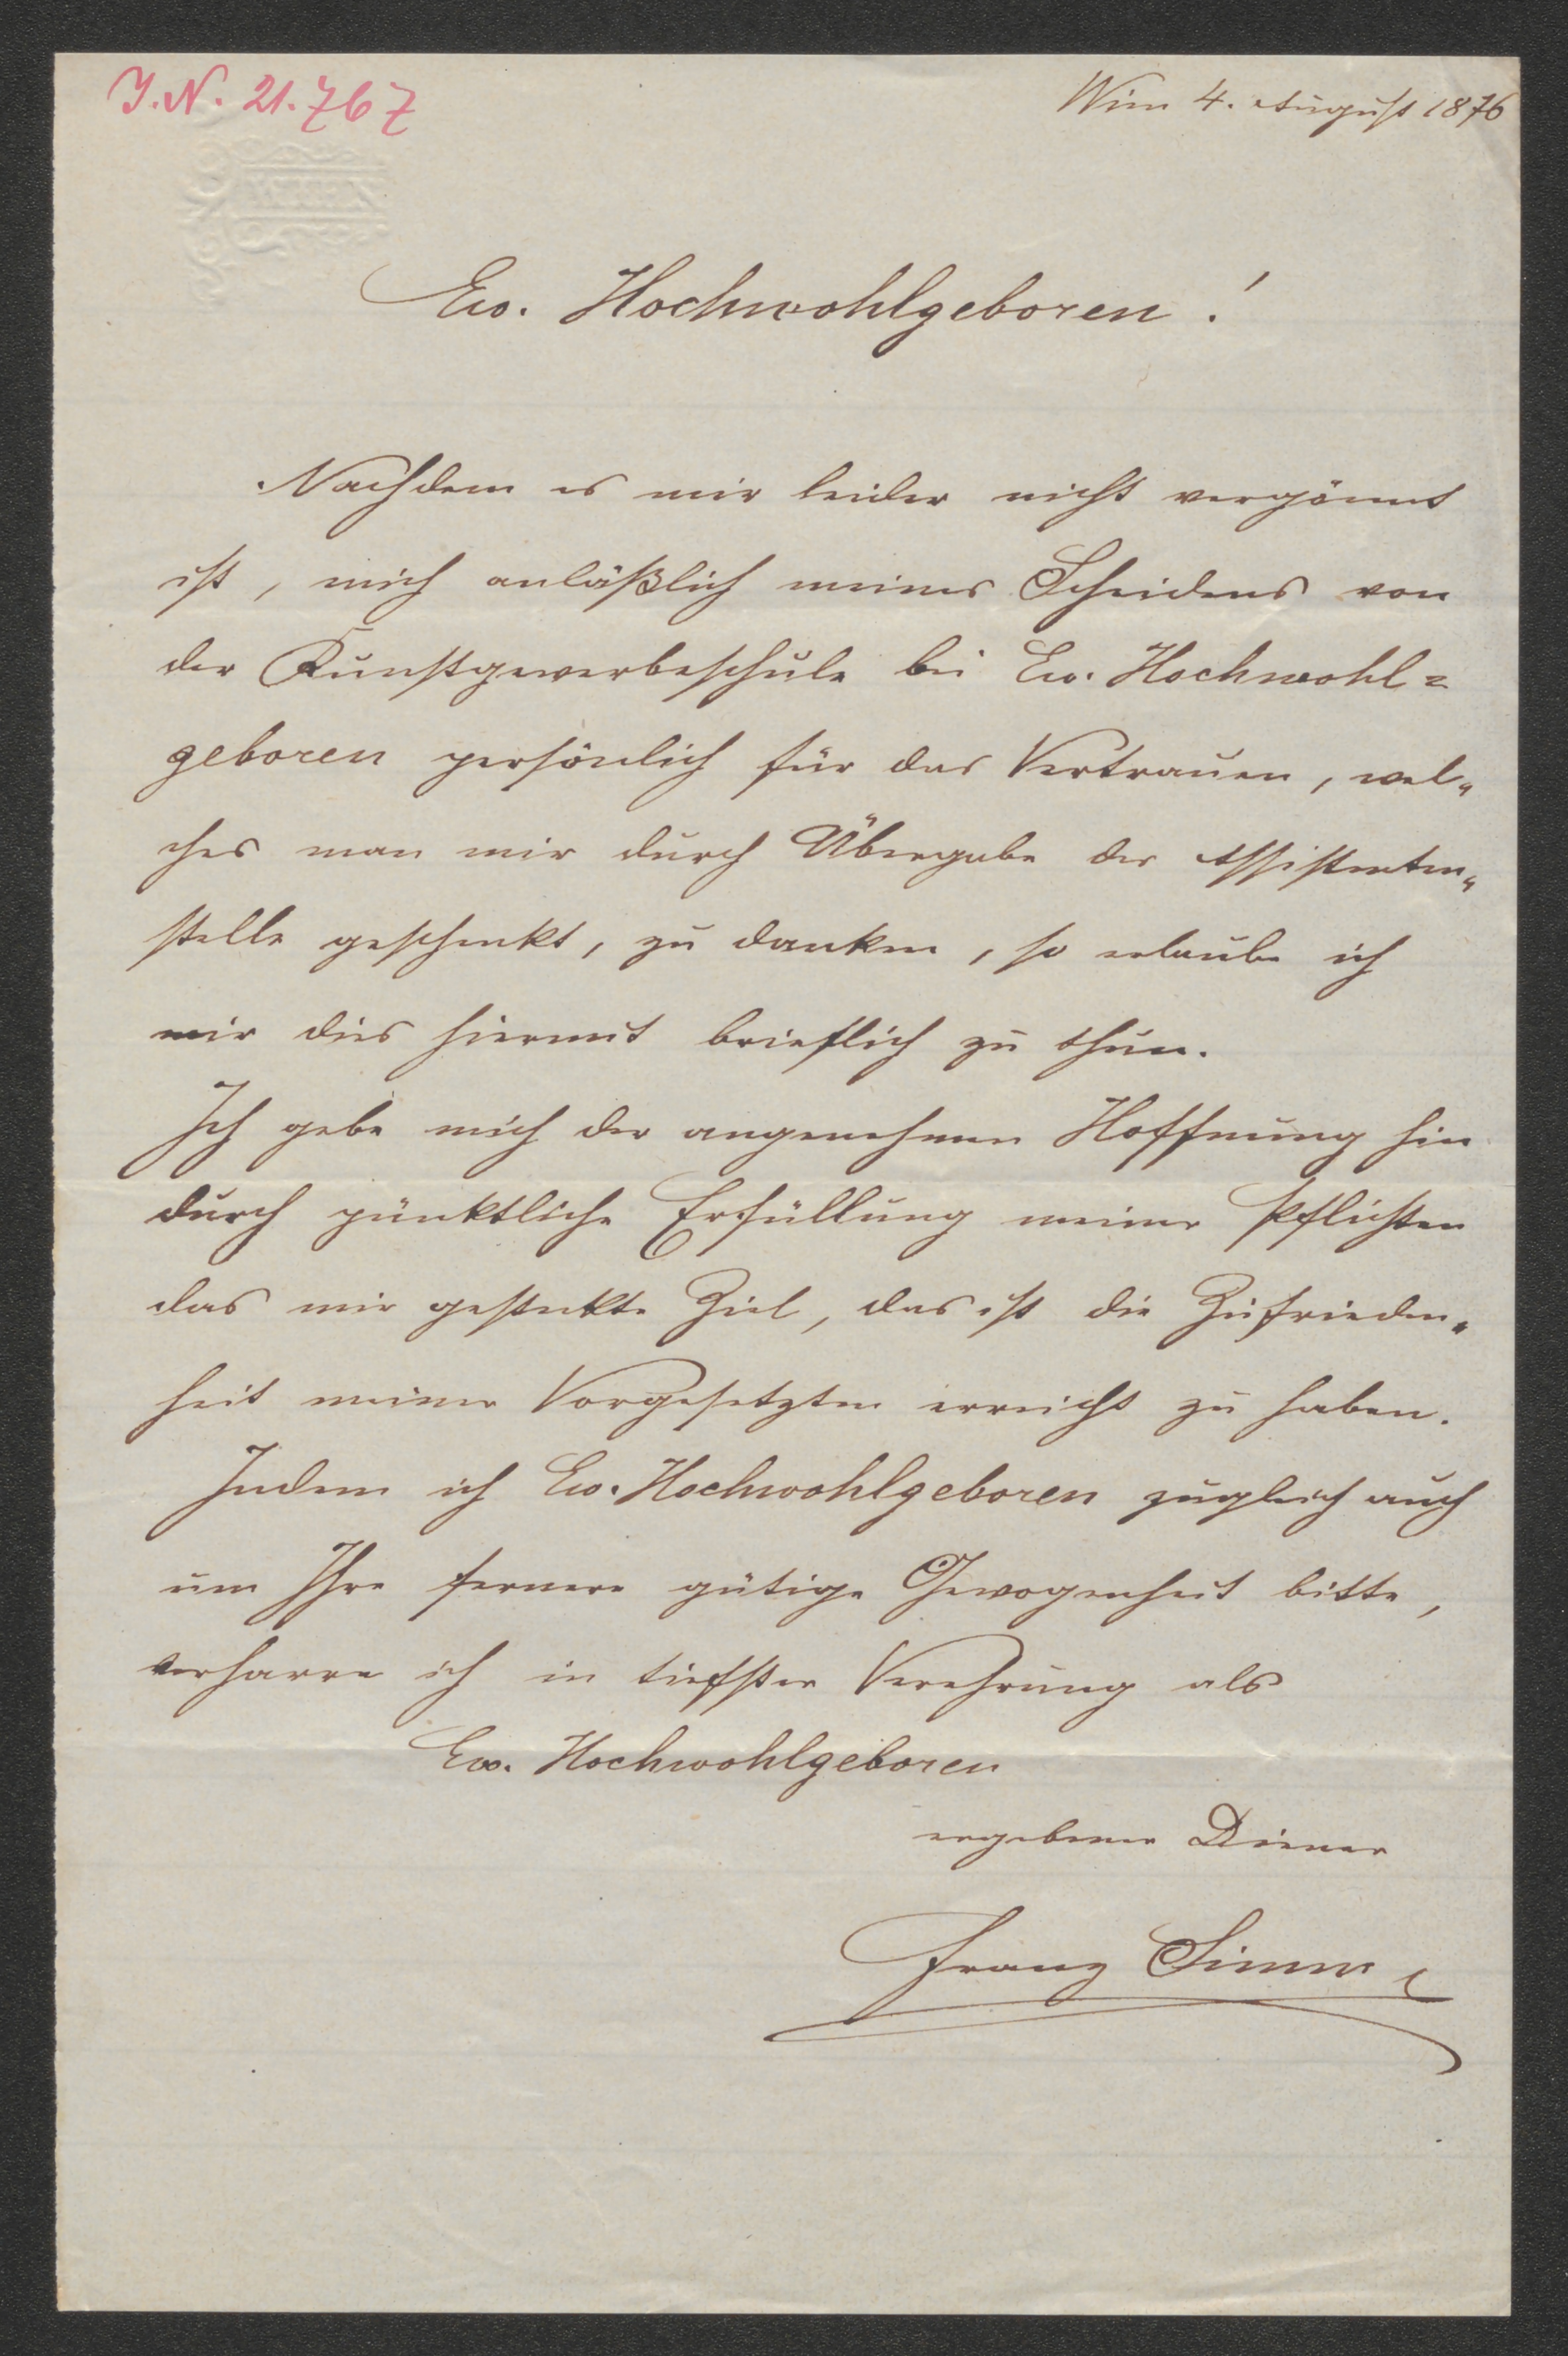 I.N. 21.767
Wien 4. August 1876
Ew. Hochwohlgeboren!
Nachdem es mir leider nicht vergönnt
ist, mich anläßlich meines Scheidens von
der Kunstgewerbeschule bei Ew. Hochwohl=
geboren persönlich für das Vertrauen, wel„
ches man mir durch Übergabe der Assistenten„
stelle geschenkt, zu danken, so erlaube ich
mir dies hiermit brieflich zu thun.
Ich gebe mich der angenehmen Hoffnung hin
durch pünktliche Erfüllung meiner Pflichten
das mir gesteckte Ziel, das ist die Zufrieden„
heit meiner Vorgesetzten erreicht zu haben.
Indem ich Ew. Hochwohlgeboren zugleich auch
um Ihre fernere gütige Gewogenheit bitte,
verharre ich in tiefster Verehrung als
Ew. Hochwohlgeboren
ergebener Diener
Franz Simm